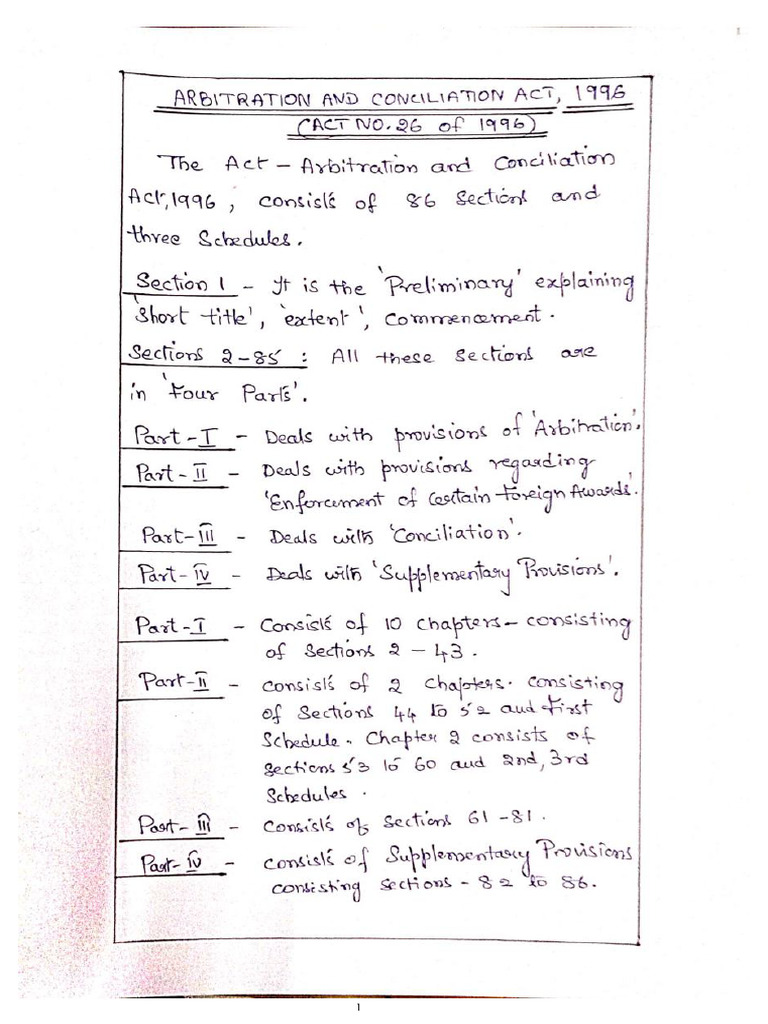 ARBITRATION AND CONCILIATION ACT, 1996
(ACT NO. 26 of 1996)
The Act – Arbitration and Conciliation
Act, 1996, consists of 86 sections and
three Schedules.
Section 1 – It is the 'Preliminary' explaining
'short title', 'extent', commencement.
Sections 2-85 : All these sections are
in 'Four Parts'.
Part-I – Deals with provisions of 'Arbitration'.
Part-II – Deals with provisions regarding
'Enforcement of Certain Foreign Awards'.
Part-III – Deals with 'Conciliation'.
Part-IV – Deals with 'Supplementary Provisions'.
Part-I – Consists of 10 chapters – consisting
of sections 2 – 43.
Part-II – consists of 2 chapters. consisting
of Sections 44 to 52 and First
Schedule. Chapter 2 consists of
sections 53 to 60 and 2nd, 3rd
schedules.
Part-III – consists of sections 61-81.
Part-IV – consists of Supplementary Provisions
consisting sections – 82 to 86.
1